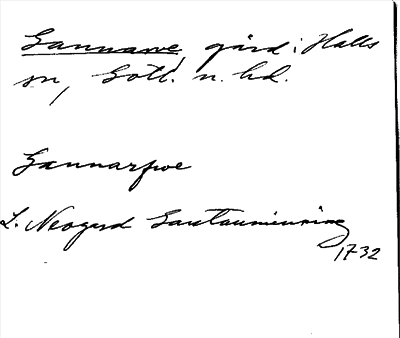 Gannarve, gård i Halls
sn, Gotl. n. hd.
Gannarfwe
L. Neogard 
1732